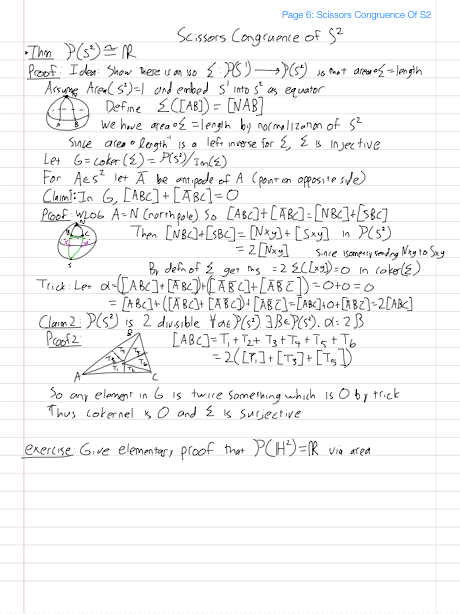 Page 6: Scissors Congruence Of S2
Scissors Congruence of S²
• Thm P(S²) ≅ ℝ
Proof: Idea: Show there is an iso Σ: P(S¹) → P(S²) so that area∘Σ = length
Assume Area(S²)=1 and embed S¹ into S² as equator
N
A B
Define Σ([AB]) = [NAB]
We have area∘Σ = length by normalization of S²
Since area∘length⁻¹ is a left inverse for Σ, Σ is injective
Let G = coker(Σ) = P(S²)/Im(Σ)
For A∈S² let Ā be antipode of A (point on opposite side)
Claim1: In G, [ABC] + [ĀBC] = 0
Proof: WLOG A=N (north pole) so [ABC]+[ĀBC] = [NBC]+[SBC]
Then [NBC]+[SBC] = [Nxy] + [Sxy] in P(S²)
= 2[Nxy] since isometry sending Nxy to Sxy
By defn of Σ get this = 2Σ([xy]) = 0 in coker(Σ)
Trick: Let α = ([ABC]+[ĀBC])+([ĀB̄C]+[ĀB̄C̄]) = 0+0 = 0
= [ABC]+([ĀBC]+[ĀB̄C])+[ĀB̄C̄] = [ABC]+0+[ĀB̄C̄] = 2[ABC]
Claim 2: P(S²) is 2 divisible ∀α∈P(S²) ∃β∈P(S²). α=2β
Proof 2:
B
A C
T₁ T₂ T₃ T₄ T₅ T₆
[ABC] = T₁+T₂+T₃+T₄+T₅+T₆
= 2([T₁]+[T₃]+[T₅])
So any element in G is twice something which is 0 by trick
Thus cokernel is 0 and Σ is surjective
exercise: Give elementary proof that P(ℍ²)=ℝ via area